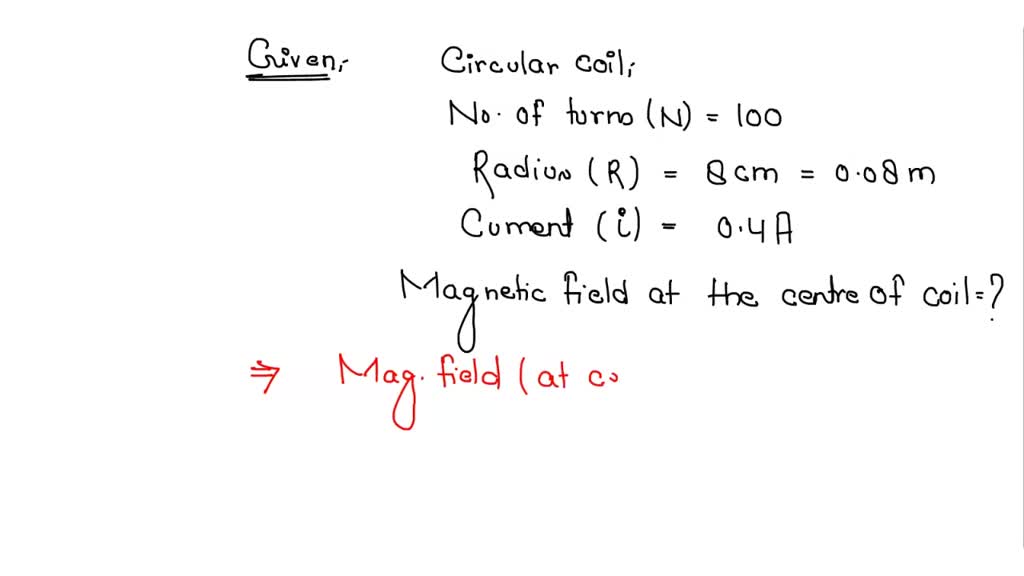 Given, Circular coil,
No. of turns (N) = 100
Radius (R) = 8 cm = 0.08 m
Current (i) = 0.4 A
Magnetic field at the centre of coil = ?
⇒ Mag. field (at c